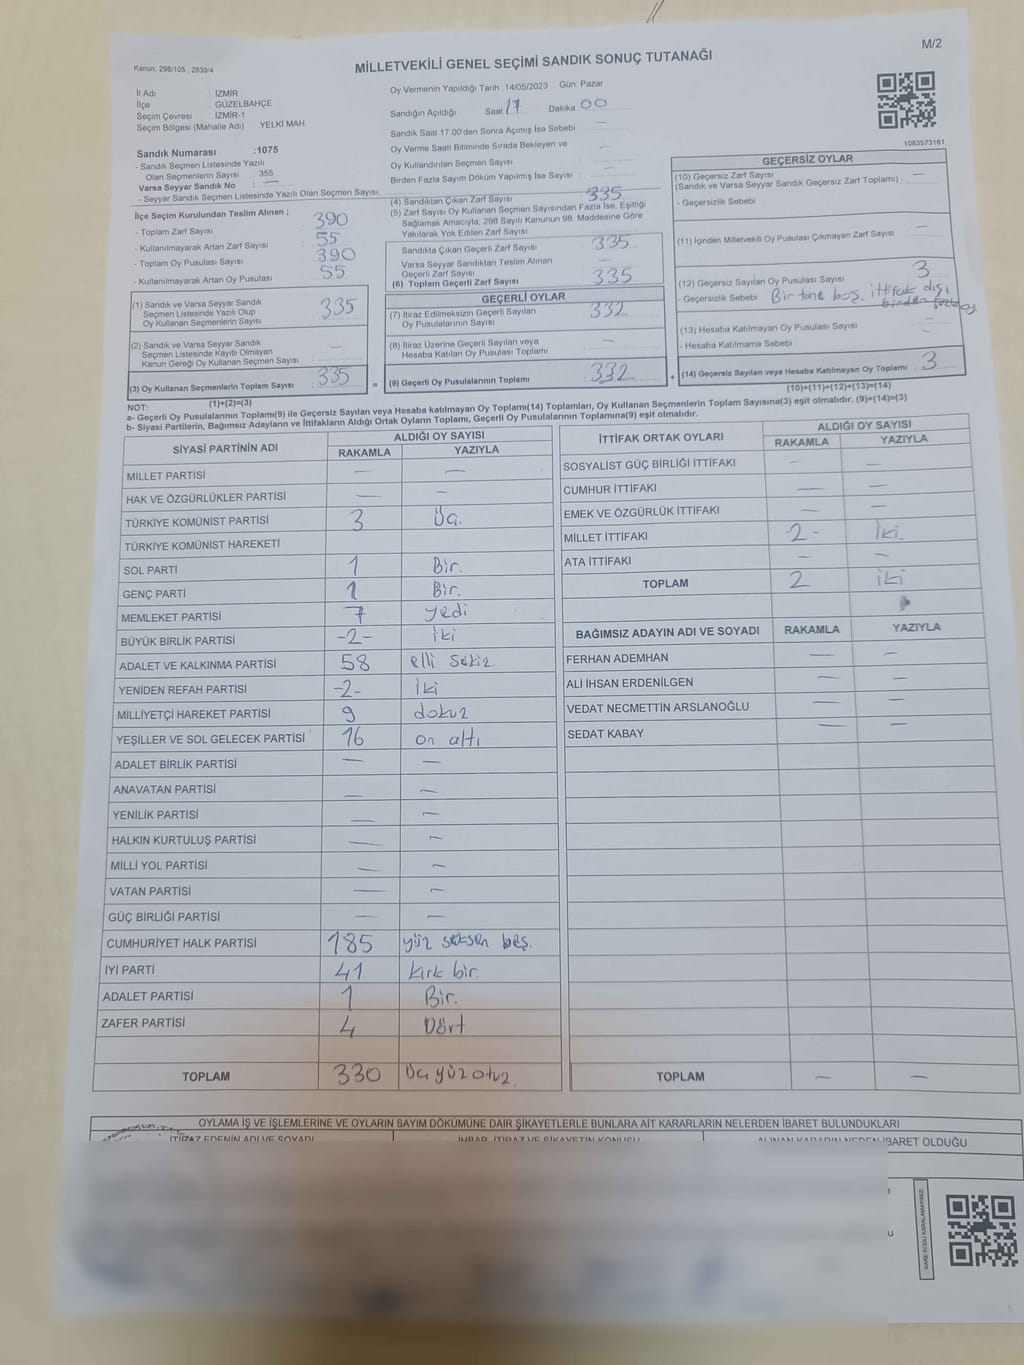 M/2
Kanun, 298/105 , 2839/4
MİLLETVEKİLİ GENEL SEÇİMİ SANDIK SONUÇ TUTANAĞI
İl Adı : İZMİR
İlçe : GÜZELBAHÇE
Seçim Çevresi : İZMİR-1
Seçim Bölgesi (Mahalle Adı) : YELKİ MAH.
Sandık Numarası :1075
- Sandık Seçmen Listesinde Yazılı
Olan Seçmenlerin Sayısı : 355
Varsa Seyyar Sandık No : —
- Seyyar Sandık Seçmen Listesinde Yazılı Olan Seçmen Sayısı:
Oy Vermenin Yapıldığı Tarih 14/05/2023 Gün: Pazar
Sandığın Açıldığı Saat 17 Dakika 00
Sandık Saat 17.00'den Sonra Açılmış İse Sebebi —
Oy Verme Saati Bitiminde Sırada Bekleyen ve
Oy Kullandırılan Seçmen Sayısı —
Birden Fazla Sayım Döküm Yapılmış İse Sayısı —
1083573161
İlçe Seçim Kurulundan Teslim Alınan ;
- Toplam Zarf Sayısı 390
- Kullanılmayarak Artan Zarf Sayısı 55
- Toplam Oy Pusulası Sayısı 390
- Kullanılmayarak Artan Oy Pusulası 55
(1) Sandık ve Varsa Seyyar Sandık
Seçmen Listesinde Yazılı Olup
Oy Kullanan Seçmenlerin Sayısı 335
(2) Sandık ve Varsa Seyyar Sandık
Seçmen Listesinde Kayıtlı Olmayan
Kanun Gereği Oy Kullanan Seçmen Sayısı —
(3) Oy Kullanan Seçmenlerin Toplam Sayısı 335 =
(1)+(2)=(3)
(4) Sandıktan Çıkan Zarf Sayısı 335
(5) Zarf Sayısı Oy Kullanan Seçmen Sayısından Fazla İse, Eşitliği
Sağlamak Amacıyla; 298 Sayılı Kanunun 98. Maddesine Göre
Yakılarak Yok Edilen Zarf Sayısı
Sandıkta Çıkan Geçerli Zarf Sayısı 335
Varsa Seyyar Sandıktan Teslim Alınan
Geçerli Zarf Sayısı —
(6) Toplam Geçerli Zarf Sayısı 335
GEÇERLİ OYLAR
(7) İtiraz Edilmeksizin Geçerli Sayılan
Oy Pusulalarının Sayısı 332
(8) İtiraz Üzerine Geçerli Sayılan veya
Hesaba Katılan Oy Pusulası Toplamı —
(9) Geçerli Oy Pusulalarının Toplamı 332 +
GEÇERSİZ OYLAR
(10) Geçersiz Zarf Sayısı —
(Sandık ve Varsa Seyyar Sandık Geçersiz Zarf Toplamı)
- Geçersizlik Sebebi
(11) İçinden Milletvekili Oy Pusulası Çıkmayan Zarf Sayısı —
(12) Geçersiz Sayılan Oy Pusulası Sayısı 3
- Geçersizlik Sebebi Bir tane boş. ittifak dışı
birden fazla oy
(13) Hesaba Katılmayan Oy Pusulası Sayısı —
- Hesaba Katılmama Sebebi —
(14) Geçersiz Sayılan veya Hesaba Katılmayan Oy Toplamı 3
(10)+(11)+(12)+(13)=(14)
NOT:
a- Geçerli Oy Pusulalarının Toplamı(9) ile Geçersiz Sayılan veya Hesaba katılmayan Oy Toplamı(14) Toplamları, Oy Kullanan Seçmenlerin Toplam Sayısına(3) eşit olmalıdır. (9)+(14)=(3)
b- Siyasi Partilerin, Bağımsız Adayların ve İttifakların Aldığı Ortak Oyların Toplamı, Geçerli Oy Pusulalarının Toplamına(9) eşit olmalıdır.
SİYASİ PARTİNİN ADI ALDIĞI OY SAYISI
RAKAMLA YAZIYLA
MİLLET PARTİSİ — —
HAK VE ÖZGÜRLÜKLER PARTİSİ — —
TÜRKİYE KOMÜNİST PARTİSİ 3 Üç.
TÜRKİYE KOMÜNİST HAREKETİ
SOL PARTİ 1 Bir.
GENÇ PARTİ 1 Bir.
MEMLEKET PARTİSİ 7 yedi
BÜYÜK BİRLİK PARTİSİ -2- iki
ADALET VE KALKINMA PARTİSİ 58 elli sekiz
YENİDEN REFAH PARTİSİ -2- iki
MİLLİYETÇİ HAREKET PARTİSİ 9 dokuz
YEŞİLLER VE SOL GELECEK PARTİSİ 16 on altı
ADALET BİRLİK PARTİSİ — —
ANAVATAN PARTİSİ — —
YENİLİK PARTİSİ — —
HALKIN KURTULUŞ PARTİSİ — —
MİLLİ YOL PARTİSİ — —
VATAN PARTİSİ — —
GÜÇ BİRLİĞİ PARTİSİ — —
CUMHURİYET HALK PARTİSİ 185 yüz seksen beş.
İYİ PARTİ 41 kırk bir.
ADALET PARTİSİ 1 Bir.
ZAFER PARTİSİ 4 Dört
TOPLAM 330 Üçyüz otuz.
İTTİFAK ORTAK OYLARI ALDIĞI OY SAYISI
RAKAMLA YAZIYLA
SOSYALİST GÜÇ BİRLİĞİ İTTİFAKI — —
CUMHUR İTTİFAKI — —
EMEK VE ÖZGÜRLÜK İTTİFAKI — —
MİLLET İTTİFAKI -2- iki.
ATA İTTİFAKI — —
TOPLAM 2 iki
BAĞIMSIZ ADAYIN ADI VE SOYADI RAKAMLA YAZIYLA
FERHAN ADEMHAN — —
ALİ İHSAN ERDENİLGEN — —
VEDAT NECMETTİN ARSLANOĞLU — —
SEDAT KABAY — —
TOPLAM — —
OYLAMA İŞ VE İŞLEMLERİNE VE OYLARIN SAYIM DÖKÜMÜNE DAİR ŞİKAYETLERLE BUNLARA AİT KARARLARIN NELERDEN İBARET BULUNDUKLARI
İTİRAZ EDENİN ADI VE SOYADI İHBAR, İTİRAZ VE ŞİKAYETİN KONUSU ALINAN KARARIN NEDEN İBARET OLDUĞU
KARE KODU KARALAMAYINIZ!